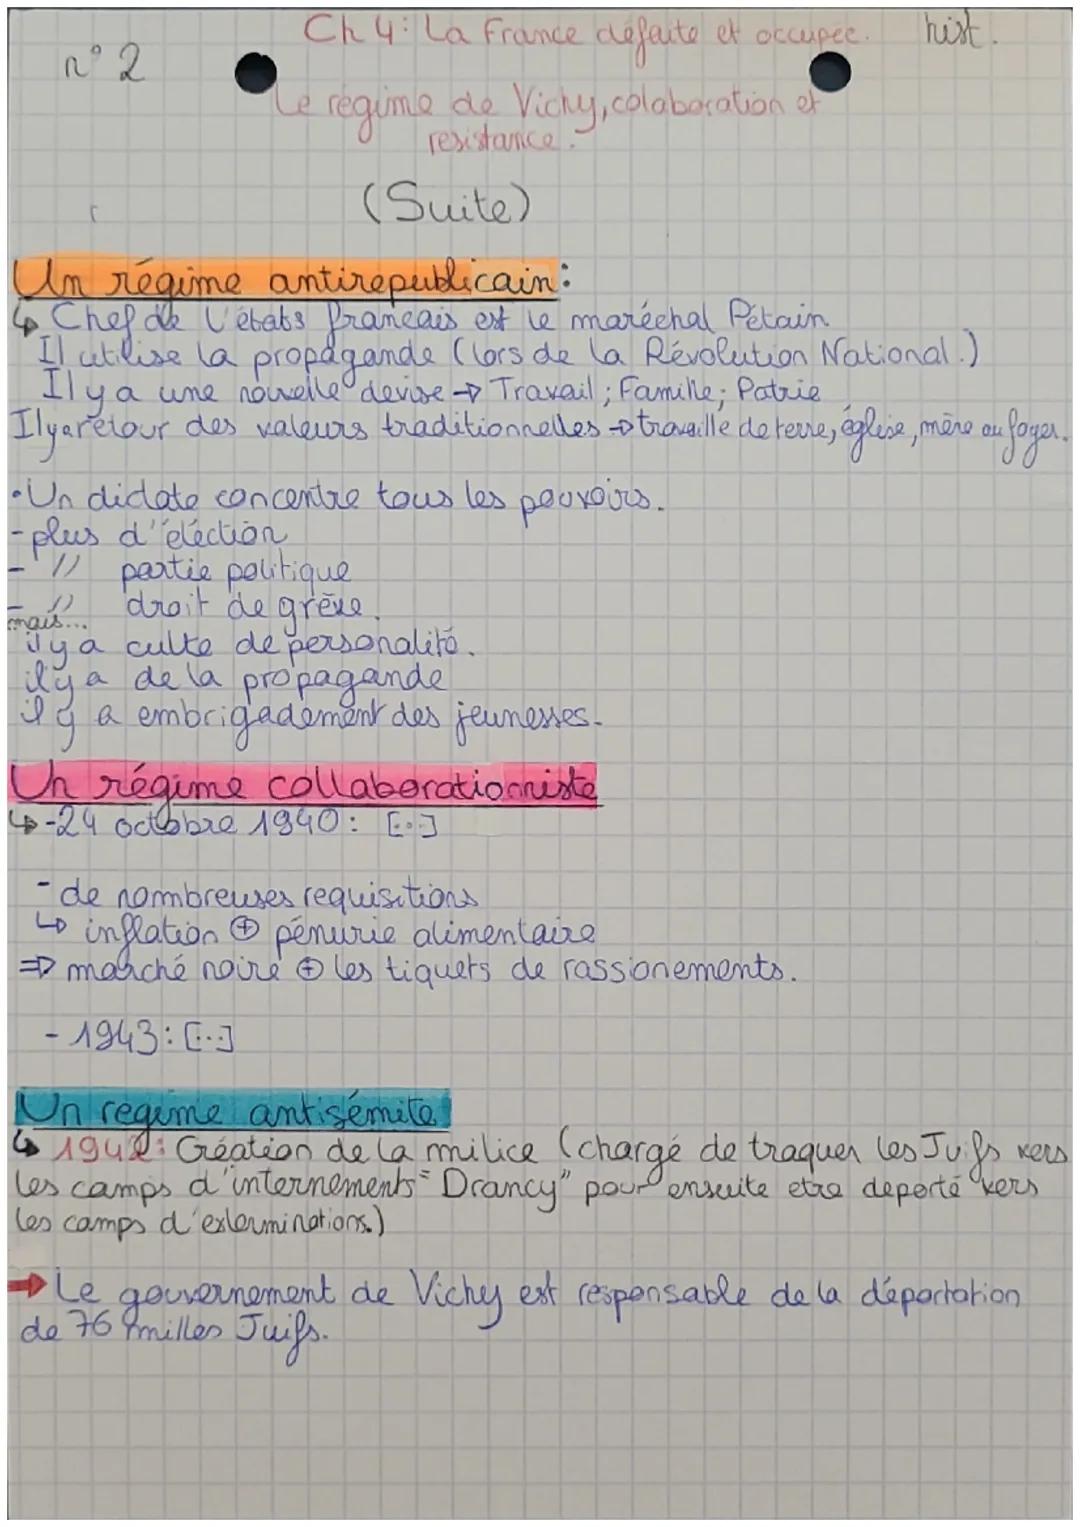 Ch 4: La France défaite et occupée. hist.
n° 2
Le régime de Vichy, colaboration et
resistance.
(Suite)
Un régime antirepublicain:
↳ Chef de l'états français est le maréchal Pétain
Il utilise la propagande (lors de la Révolution National.)
Il y a une nouvelle devise → Travail; Famille; Patrie
Il y a retour des valeurs traditionnelles → travaille de terre, église, mère au foyer.
• Un dictate concentre tous les pouvoirs.
- plus d'élection
- // partie politique
- // droit de grève.
mais...
il y a culte de personalité.
il y a de la propagande
il y a embrigadement des jeunesses.
Un régime collaborationniste
↳ - 24 octobre 1940: [...]
- de nombreuses requisitions
↳ inflation ⊕ pénurie alimentaire
⇒ marché noire ⊕ les tiquets de rassionements.
- 1943: [...]
Un regime antisémite
↳ 1942: Création de la milice (chargé de traquer les Juifs vers
les camps d'internements "Drancy" pour ensuite etre deporté vers
les camps d'exterminations.)
→ Le gouvernement de Vichy est responsable de la déportation
de 76 milles Juifs.